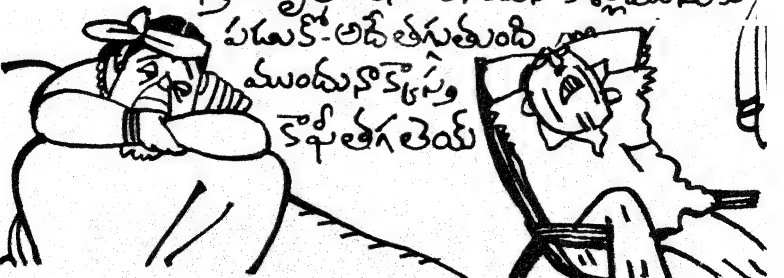 పడుకో-అదే తగ్గుతుంది
ముందు నాక్కాస్త
కాఫీ తగలెయ్